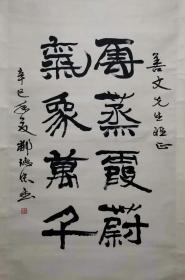 善文先生雅正
雲蒸霞蔚
氣象萬千
辛巳年夏